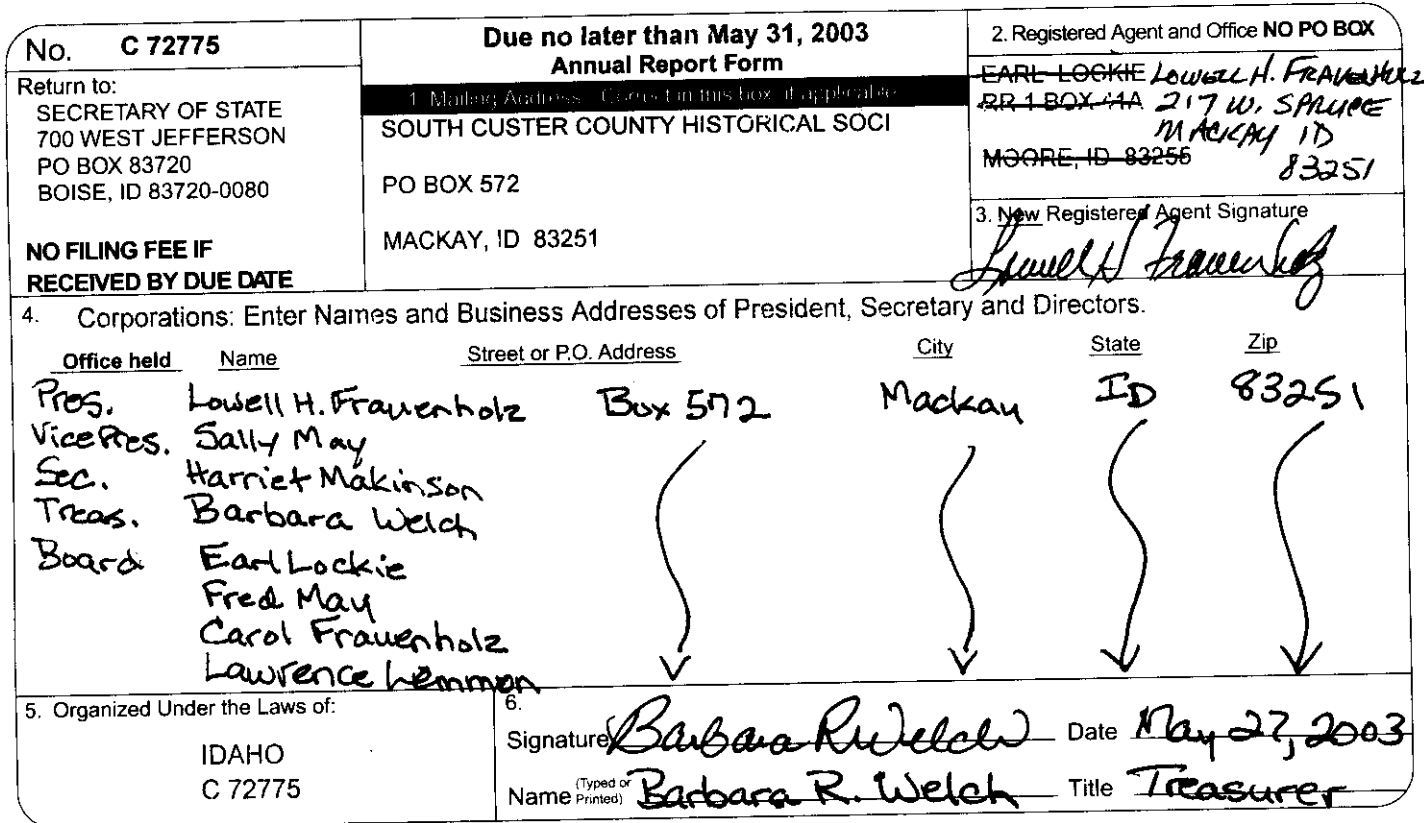 No. C 72775
Return to:
SECRETARY OF STATE
700 WEST JEFFERSON
PO BOX 83720
BOISE, ID 83720-0080
NO FILING FEE IF
RECEIVED BY DUE DATE
Due no later than May 31, 2003
Annual Report Form
1. Mailing Address - Correct in this box, if applicable
SOUTH CUSTER COUNTY HISTORICAL SOCI
PO BOX 572
MACKAY, ID 83251
2. Registered Agent and Office NO PO BOX
EARL LOCKIE LOWELL H. FRAUENHOLZ
RR 1 BOX 41A 217 W. SPRUCE
MACKAY ID
MOORE, ID 83255 83251
3. New Registered Agent Signature
Lowell H Frauenholz
4. Corporations: Enter Names and Business Addresses of President, Secretary and Directors.
Office held Name Street or P.O. Address City State Zip
Pres. Lowell H. Frauenholz Box 572 Mackay ID 83251
Vice Pres. Sally May
Sec. Harriet Makinson
Treas. Barbara Welch
Board Earl Lockie
Fred May
Carol Frauenholz
Lawrence Lemmon
5. Organized Under the Laws of:
IDAHO
C 72775
6.
Signature Barbara R Welch Date May 27, 2003
Name (Typed or Printed) Barbara R. Welch Title Treasurer